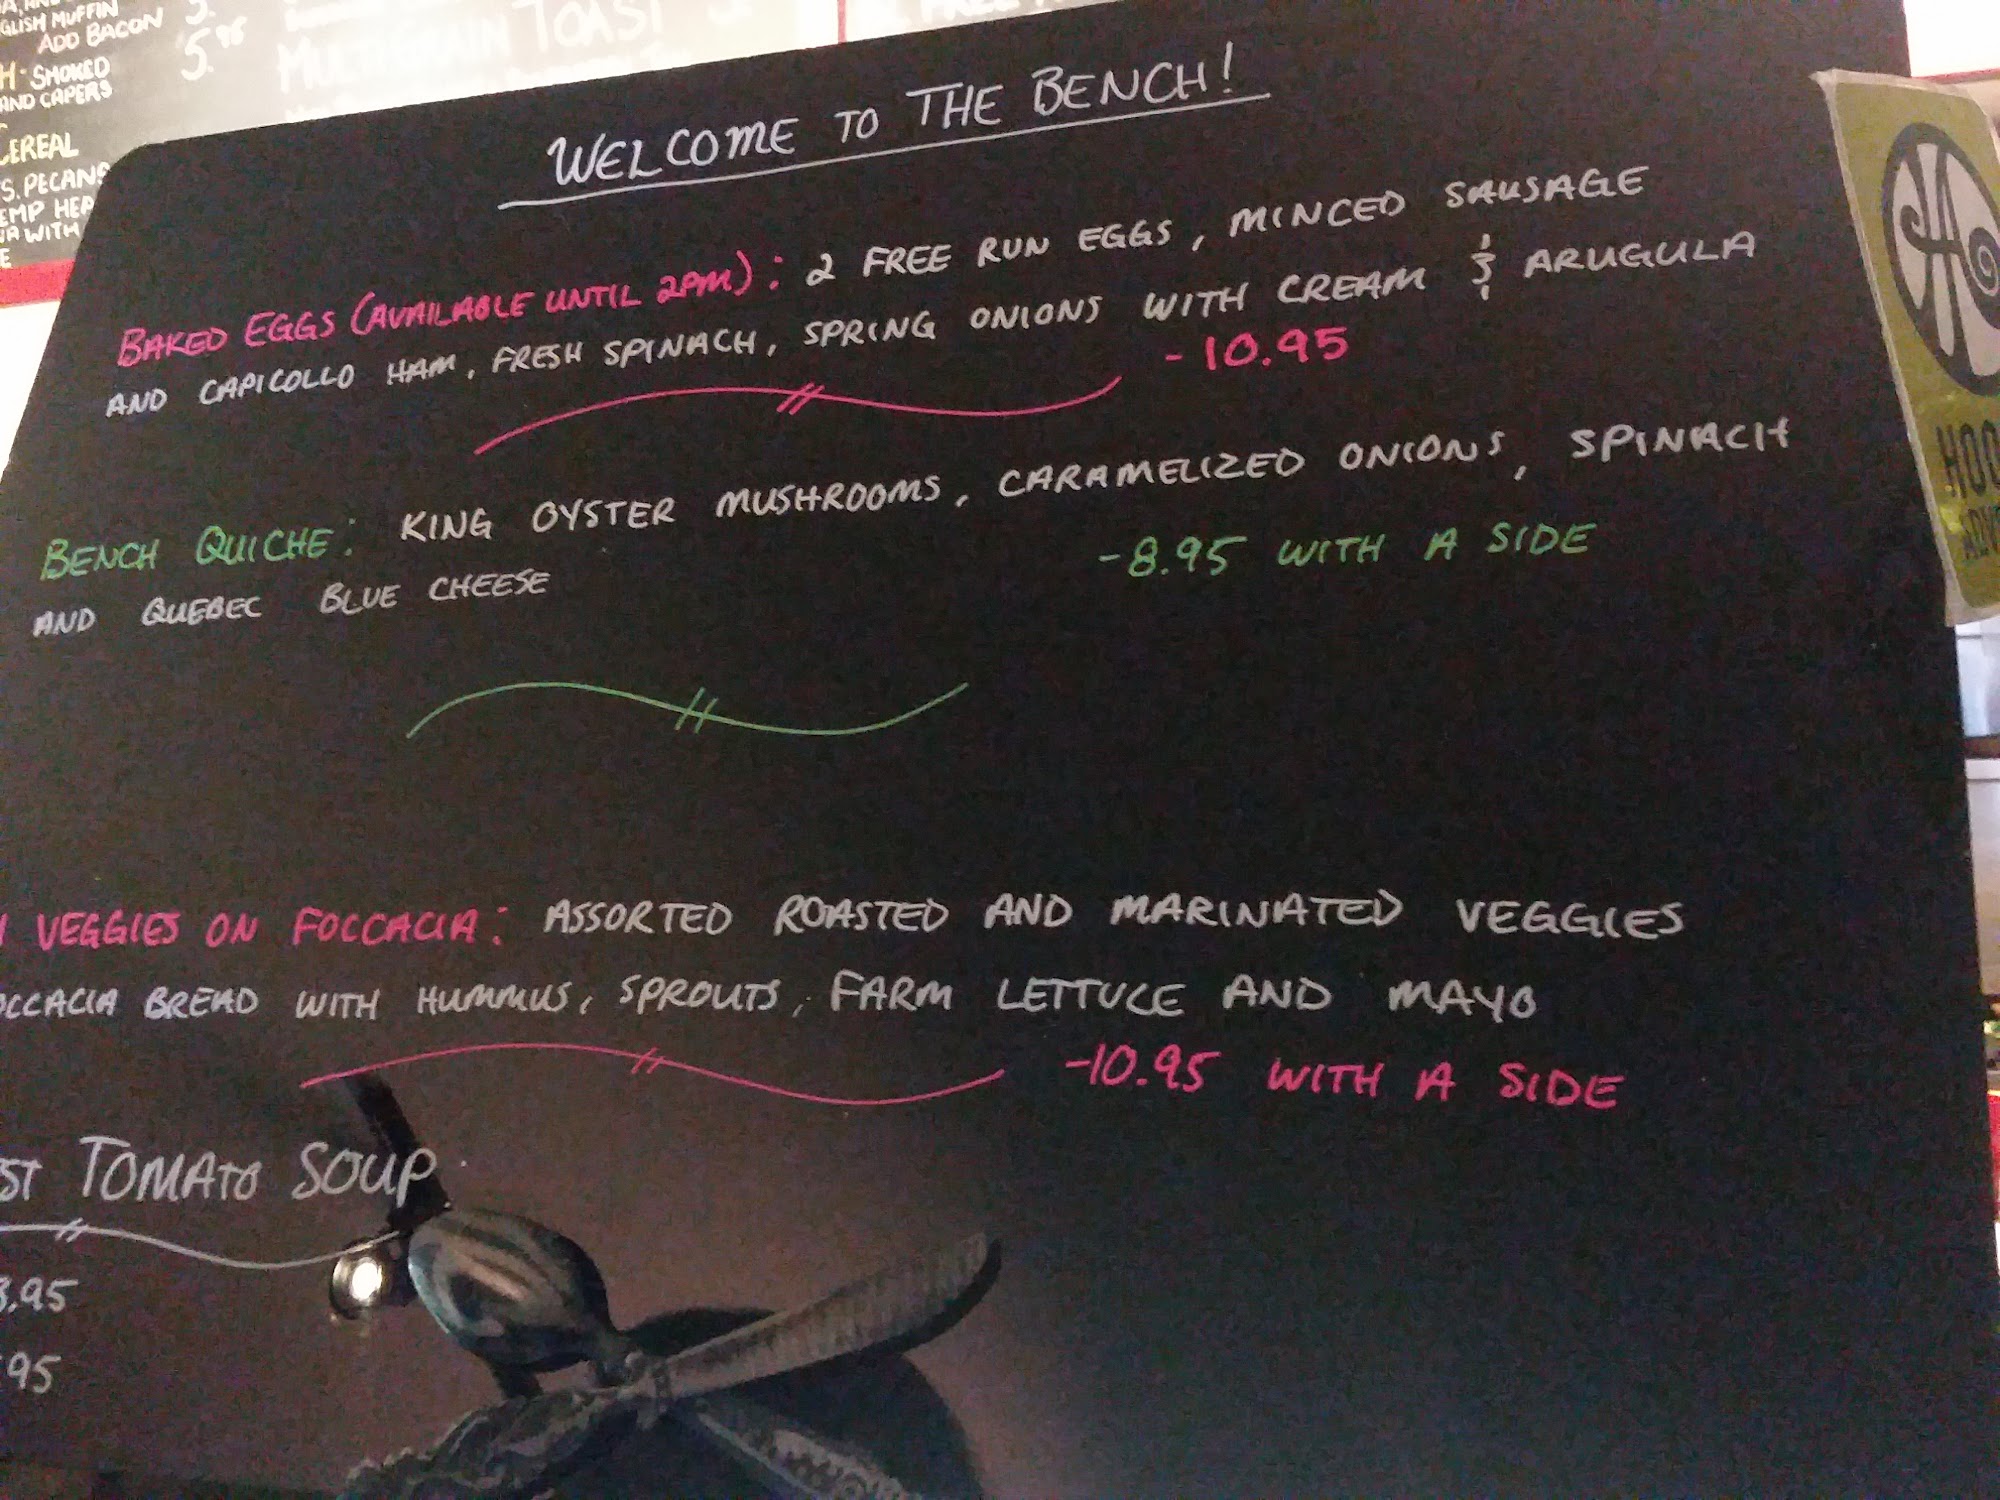 GLISH MUFFIN
ADD BACON 5.95
SMOKED
AND CAPERS
CEREAL
PECANS
WITH
TOAST
WELCOME TO THE BENCH!
BAKED EGGS (AVAILABLE UNTIL 2PM): 2 FREE RUN EGGS, MINCED SAUSAGE
AND CAPICOLLO HAM, FRESH SPINACH, SPRING ONIONS WITH CREAM & ARUGULA
-10.95
BENCH QUICHE: KING OYSTER MUSHROOMS, CARAMELIZED ONIONS, SPINACH
AND QUEBEC BLUE CHEESE
-8.95 WITH A SIDE
VEGGIES ON FOCCACIA: ASSORTED ROASTED AND MARINATED VEGGIES
OCCACIA BREAD WITH HUMMUS, SPROUTS, FARM LETTUCE AND MAYO
-10.95 WITH A SIDE
ST TOMATO SOUP
.95
95
HOO
ADV